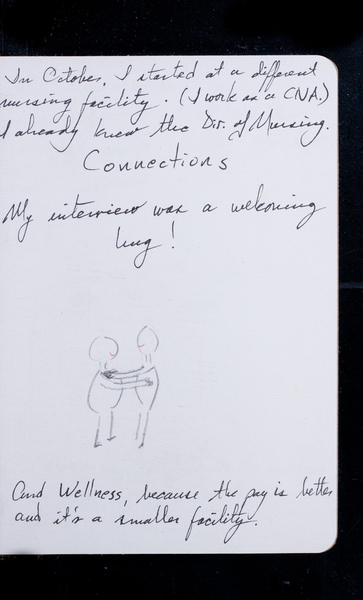 In October, I started at a different
nursing facility. (I work as a CNA.)
I already knew the Dir. of Nursing.
Connections
My interview was a welcoming
hug!
And Wellness, because the pay is better
and it's a smaller facility.